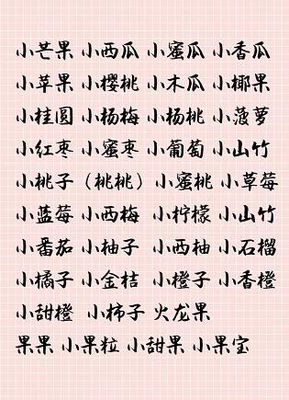 小芒果 小西瓜 小蜜瓜 小香瓜
小苹果 小樱桃 小木瓜 小椰果
小桂圆 小杨梅 小杨桃 小菠萝
小红枣 小蜜枣 小葡萄 小山竹
小桃子（桃桃） 小蜜桃 小草莓
小蓝莓 小西梅 小柠檬 小山竹
小番茄 小柚子 小西柚 小石榴
小橘子 小金桔 小橙子 小香橙
小甜橙 小柿子 火龙果
果果 小果粒 小甜果 小果宝